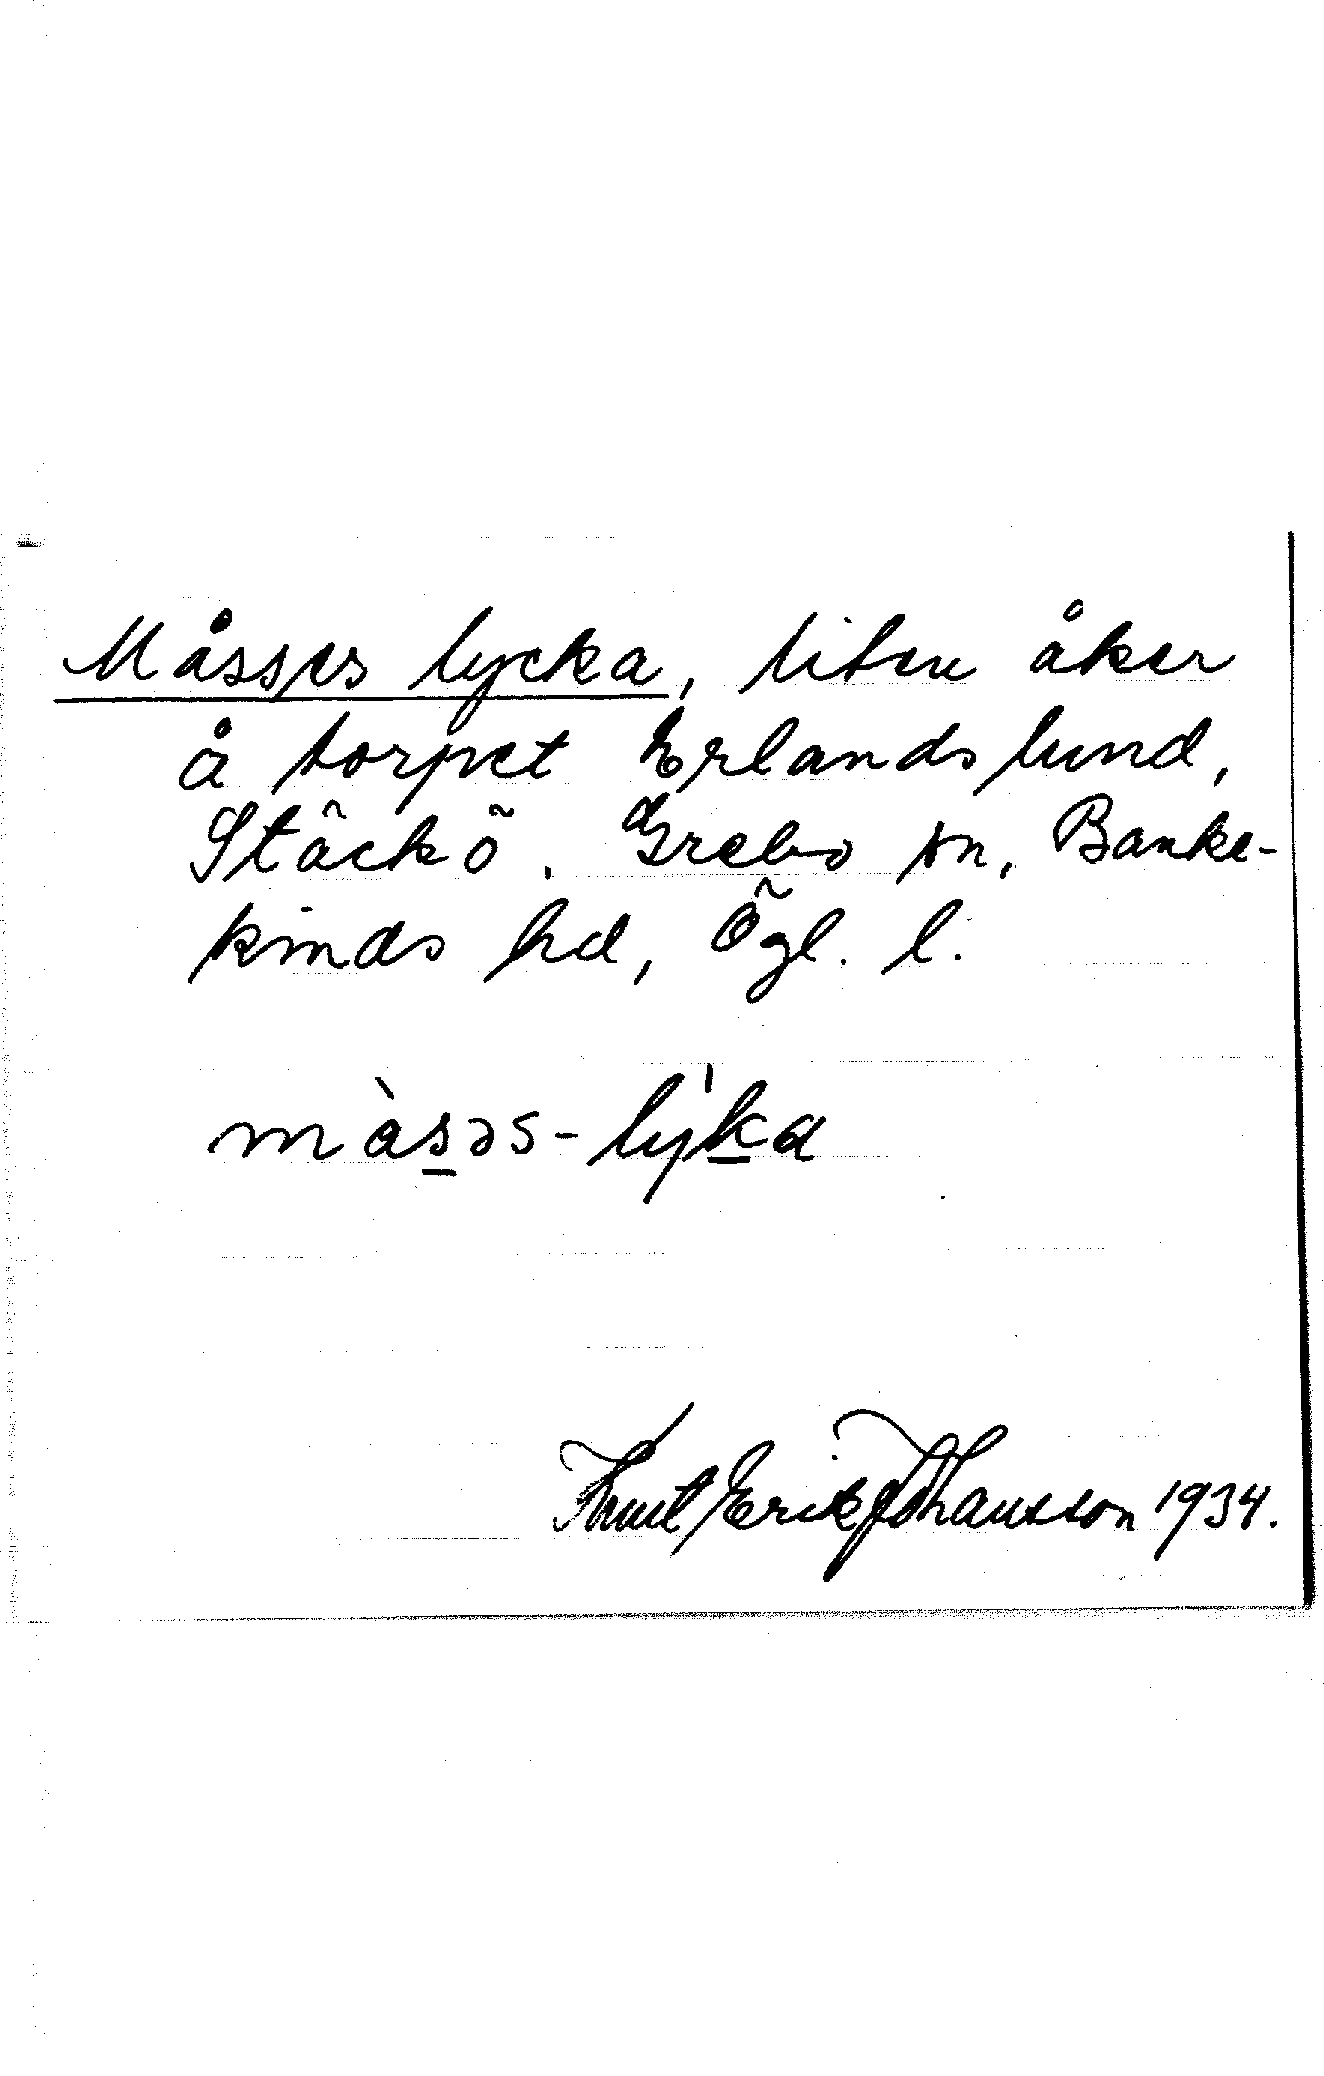 Måsses lycka, liten åker
å torpet Erlandslund,
Stäckö. Grebo sn, Banke-
kinds hd, Ögl. l.
màsəs-ly̍ka
Knut Erik Johansson 1934.